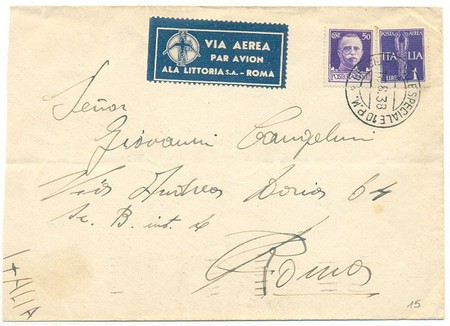 VIA AEREA
PAR AVION
ALA LITTORIA S.A. - ROMA
50
POSTE
POSTA AEREA
ITALIA
LIRE 1
38
SPECIALE 10 P.M.
Señor
Giovanni Cangelini
Via Andrea Doria 64
Sc. B. int. 4
Roma
ITALIA
15